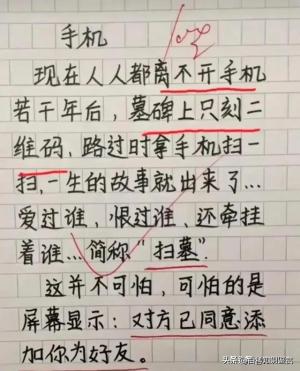 手机
现在人人都离不开手机
若干年后，墓碑上只刻二
维码，路过时拿手机扫一
扫，一生的故事就出来了…
爱过谁，恨过谁，还牵挂
着谁…简称"扫墓".
这并不可怕，可怕的是
屏幕显示：对方已同意添
加你为好友。